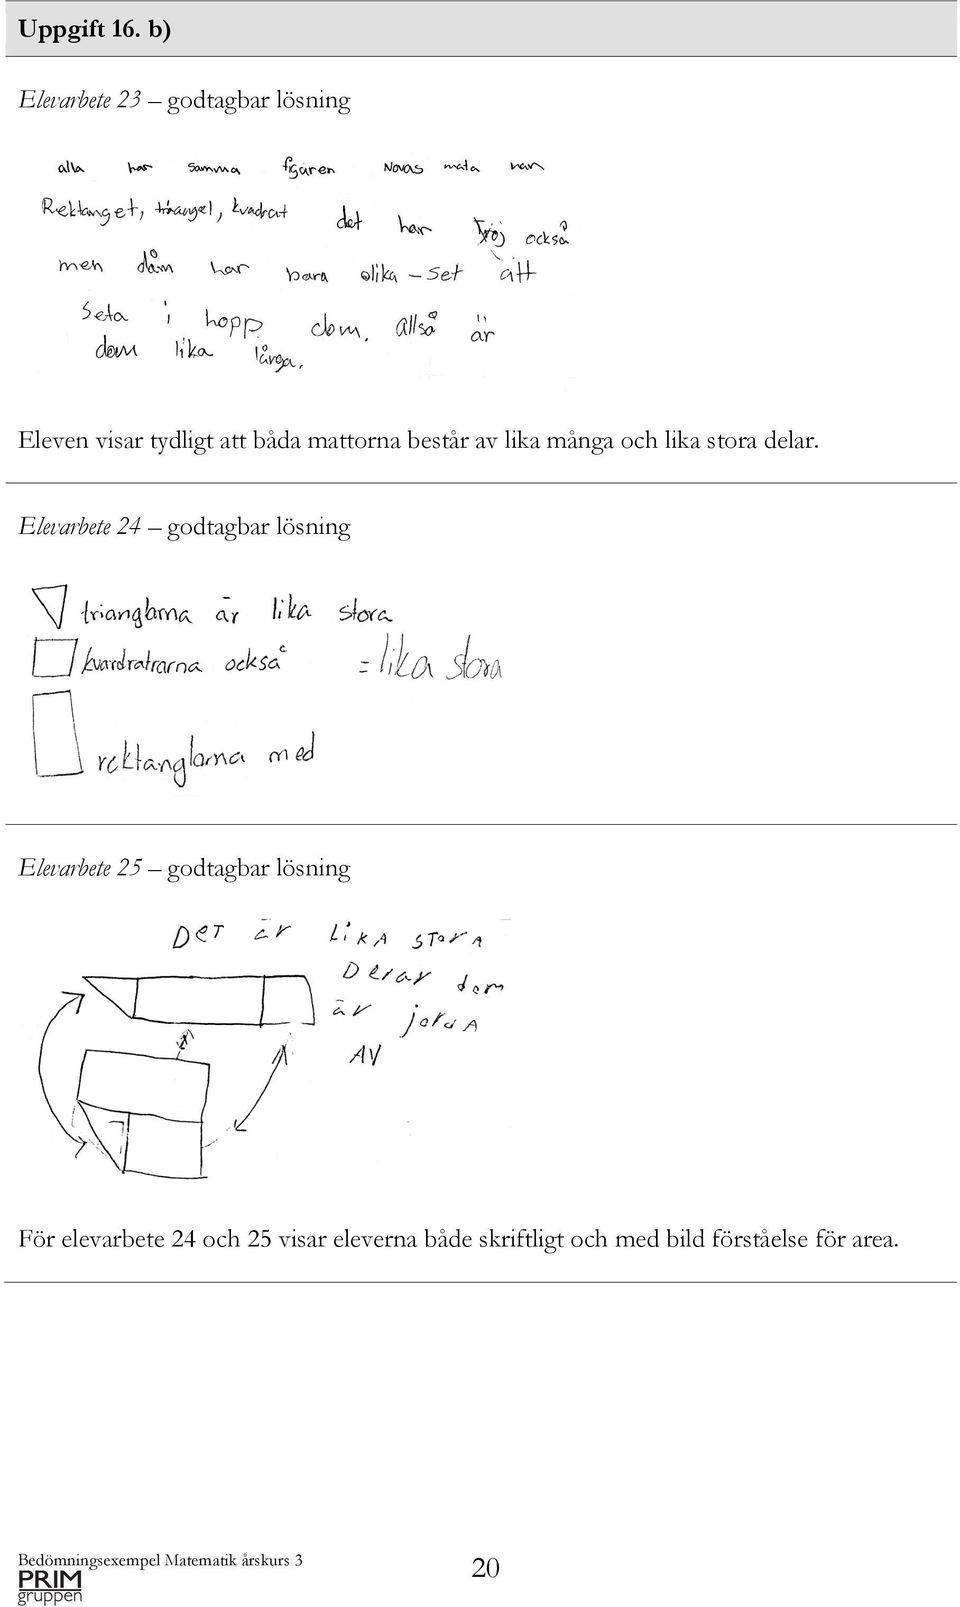 Uppgift 16. b)
Elevarbete 23 – godtagbar lösning
alla har samma figuren Novas mata har
Rektanget, triangel, kvadrat det har Troj också
men dåm har bara olika – set att
Seta i hopp dom. allså är
dom lika lårga.
Eleven visar tydligt att båda mattorna består av lika många och lika stora delar.
Elevarbete 24 – godtagbar lösning
trianglarna är lika stora
kvardratrarna också = lika stora
rektanglarna med
Elevarbete 25 – godtagbar lösning
DET är LiKA STORA
Derar dem
är jorda
AV
För elevarbete 24 och 25 visar eleverna både skriftligt och med bild förståelse för area.
Bedömningsexempel Matematik årskurs 3
PRIM
gruppen
20